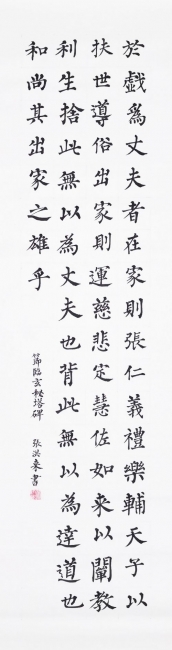 於戲為丈夫者在家則張仁義禮樂輔天子以
扶世導俗出家則運慈悲定慧佐如来以闡教
利生捨此無以為丈夫也背此無以為達道也
和尚其出家之雄乎
節臨玄秘塔碑
張洪来書